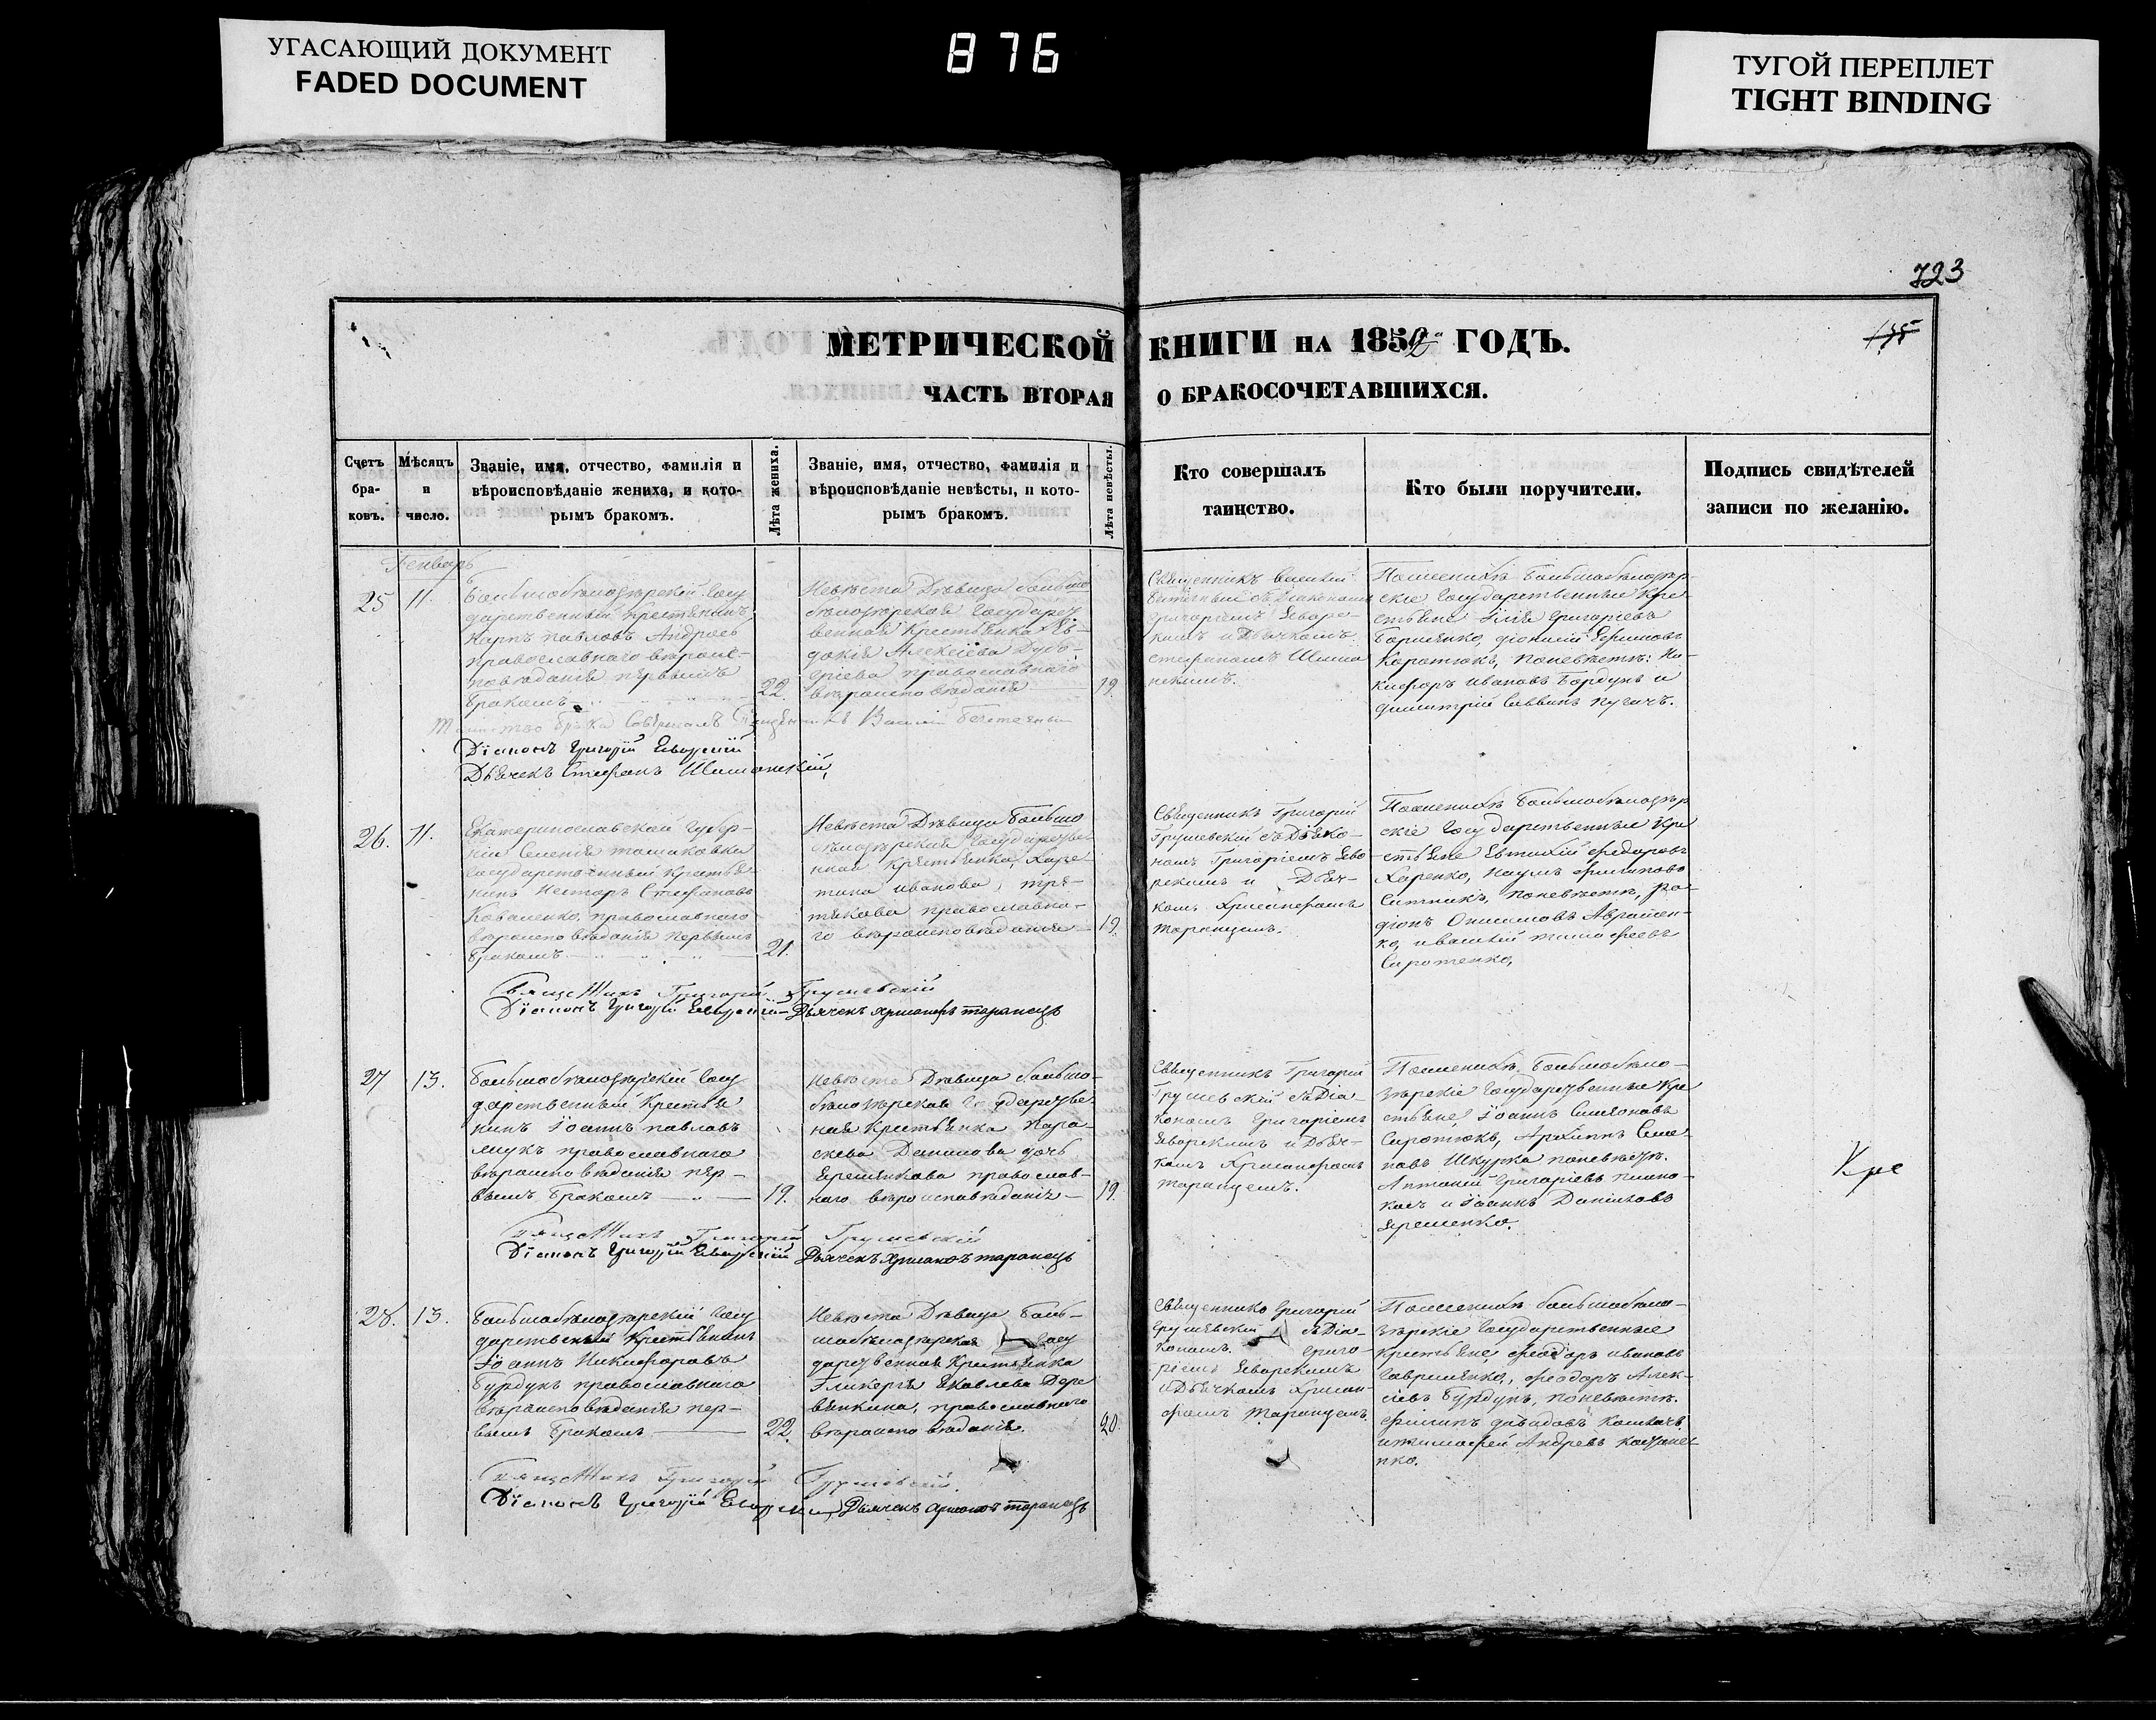 УГАСАЮЩИЙ ДОКУМЕНТ
FADED DOCUMENT
876
ТУГОЙ ПЕРЕПЛЕТ
TIGHT BINDING
723
МЕТРИЧЕСКОЙ КНИГИ НА 1852 ГОДЪ.
ЧАСТЬ ВТОРАЯ О БРАКОСОЧЕТАВШИХСЯ.
Счетъ бра-ковъ.
Мѣсяцъ и число.
Званіе, имя, отчество, фамилія и
вѣроисповѣданіе жениха, и кото-
рымъ бракомъ.
Лѣта жениха.
Званіе, имя, отчество, фамилія и
вѣроисповѣданіе невѣсты, и кото-
рымъ бракомъ.
Лѣта невѣсты.
Кто совершалъ
таинство.
Кто были поручители.
Подпись свидѣтелей
записи по желанію.
Генварь
25
11.
Большобѣлозѣрскій Госу
дарственный Крестьянинъ
Карпъ Павловъ Андреев
православнаго вѣроис-
повѣданія первымъ
бракомъ
22.
Невѣста Дѣвица Большо
бѣлозѣрская Государст
венная Крестьянка Ев-
докія Алексіева
православнаго
вѣроисповѣданія
19.
Священникъ Василій
съ Діакономъ
Григоріемъ Явор-
скимъ и Дьячкомъ
Стефаномъ Шиман
скимъ.
Поженихѣ Большобѣлозѣр-
скіе Государственные Кре-
стьяне Илія Григоріевъ
Діонисій Ефимовъ
Коротюкъ, поневѣстѣ: Ни-
кифоръ Ивановъ Бордунъ и
Димитрій Саввинъ Пугачъ.
Таинство брака совершалъ Священникъ Василій
Діаконъ Григорій Яворскій
Дьячекъ Стефанъ Шиманскій,
26.
11.
Екатеринославской Губер-
ніи Селенія Томаковки
Государственный Крестья
нинъ Несторъ Стефановъ
Коваленко, православнаго
вѣроисповѣданія первымъ
бракомъ
21.
Невѣста Дѣвица Большо
бѣлозѣрская Государстве
нная Крестьянка, Харе
тина Иванова, тре-
тякова православна-
го вѣроисповѣданія
19.
Священникъ Григорій
Грушевскій съ Діако-
номъ Григоріемъ Яво
рскимъ и Дьяч-
комъ Хрисанфомъ
Таранцемъ.
Поженихѣ Большобѣлозѣр
скіе Государственные Кре
стьяне Евтихій Федоровъ
Харенко, Наумъ Филипово
Ситникъ, поневѣстѣ, Ро-
діонъ Онисимовъ Авраmен-
ко, и Василій Тимофеевъ
Сиротенко,
Священникъ Григорій Грушевскій
Діаконъ Григорій Яворскій Дьячекъ Хрисанфъ Таранецъ
27
13.
Большобѣлозѣрскій Госу
дарственный Крестья
нинъ Іоаннъ Павловъ
православнаго
вѣроисповѣданія пер-
вымъ бракомъ
19.
Невѣста Дѣвица Больше-
бѣлозѣрская Государстве
ная Крестьянка Пара-
скева Данилова дочь
Еременкова православ-
наго вѣроисповѣданія
19.
Священникъ Григорій
Грушевскій съ Діа-
кономъ Григоріемъ
Яворскимъ и Дьяч-
комъ Хрисанфомъ
Таранцемъ.
Поженихѣ, Большобѣло-
зѣрскіе Государственные Кре
стьяне, Іоаннъ Симеоновъ
Сиротюкъ, Архипъ Семе-
новъ Шкурка поневѣстѣ.
Антоній Григоріевъ
и Іоаннъ Даніиловъ
Еременко.
Кре
Священникъ Григорій Грушевскій
Діаконъ Григорій Яворскій Дьячекъ Хрисанфъ Таранецъ
28.
13.
Большобѣлозѣрскій Госу
дарственный Крестьянинъ
Іоаннъ Никифоровъ
Бурдунъ православнаго
вѣроисповѣданія пер-
вымъ бракомъ
22.
Невѣста Дѣвица Боль-
шобѣлозѣрская Госу
дарственная Крестьянка
Гликерія Яковлева Дере
вянкина, православнаго
вѣроисповѣданія.
20.
Священникъ Григорій
Грушевскій съ Діа-
кономъ Григо-
ріемъ Яворскимъ
и Дьячкомъ Хрисан-
фомъ Таранцемъ.
Поженихѣ Большобѣло-
зѣрскіе Государственные
Крестьяне, Феодоръ Ивановъ
Гавриленко, Феодоръ Алек-
сѣевъ Бурдунъ, поневѣстѣ.
Филипъ Давидовъ
и Тимофей Андреевъ
нко.
Священникъ Григорій Грушевскій.
Діаконъ Григорій Яворскій Дьячекъ Хрисанфъ Таранецъ